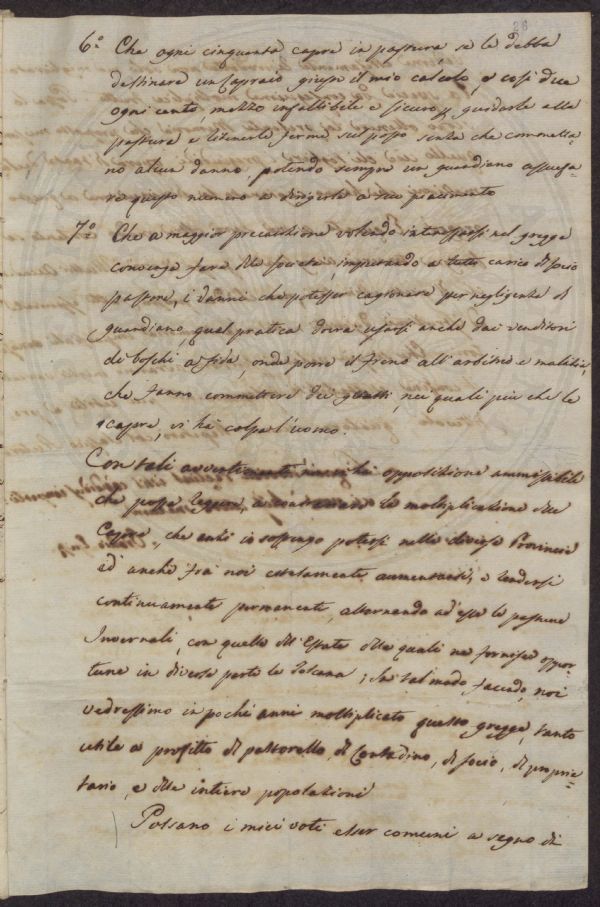 26
6.º Che ogni cinquanta capre in pastura, se le debba
destinare un Capraio giusta il mio calcolo, e così due
ogni cento, mezzo infallibile e sicuro p guidarle alla
pastura e tenerle ferme sul posto senza che commetta=
no alcun danno, potendo sempre un guardiano assuefa=
re questo numero a dirigerle a suo piacimento
7.º Che a maggior precauzione volendo interessarsi nel gregge
convenga fare delle società, imperando a tutto carico di socio
pastore, i danni che potesser cagionare per negligenza di
guardiano, qual pratica dovrà usarsi anche dai venditori
di boschi a fida, onde porre il freno all'arbitrio e malizia
che fanno commettere dei guasti, nei quali più che le
capre, vi ha colpa l'uomo.
Con tali avvertimenti opposizione ammissibile
che possa leggersi, a la moltiplicazione delle
Capre, che anzi io sostengo potersi nelle diverse Provincie
ed anche fra noi estesamente aumentarsi, e rendersi
continuamente permanente, alternando ad esse le pasture
Invernali, con quelle dell'Estate delle quali ne fornisce oppor=
tune in diverse parti la Toscana; In tal modo facendo, noi
vedressimo in pochi anni moltiplicato questo gregge, tanto
utile a profitto di pastorello, di Contadino, di socio, di proprie=
tario, e delle intiere popolazioni
Possano i miei voti esser comuni a segno di